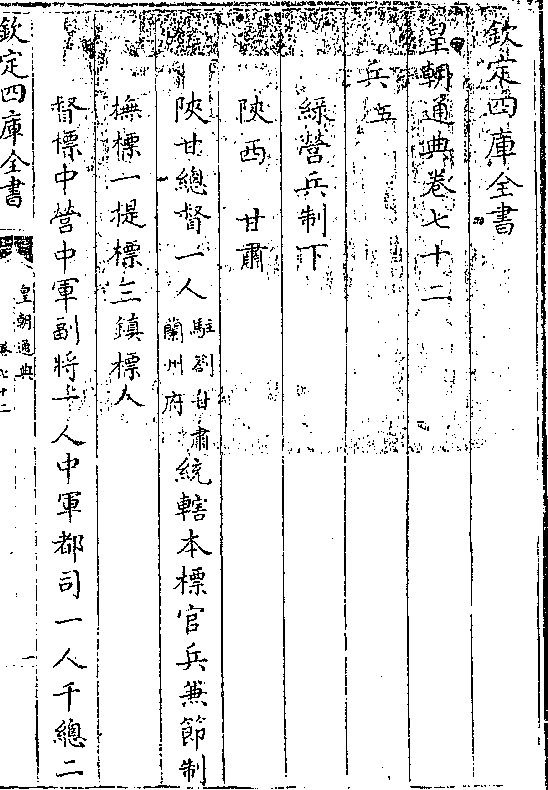 欽定四庫全書
皇朝通典卷七十二
兵五
綠營兵制下
陜西 甘肅
陜甘總督一人駐劄甘肅蘭州府統轄本標官兵兼節制
撫標一提標三鎮標八
督標中營中軍副將一人中軍都司一人千總二
欽定四庫全書
皇朝通典
卷七十二
一